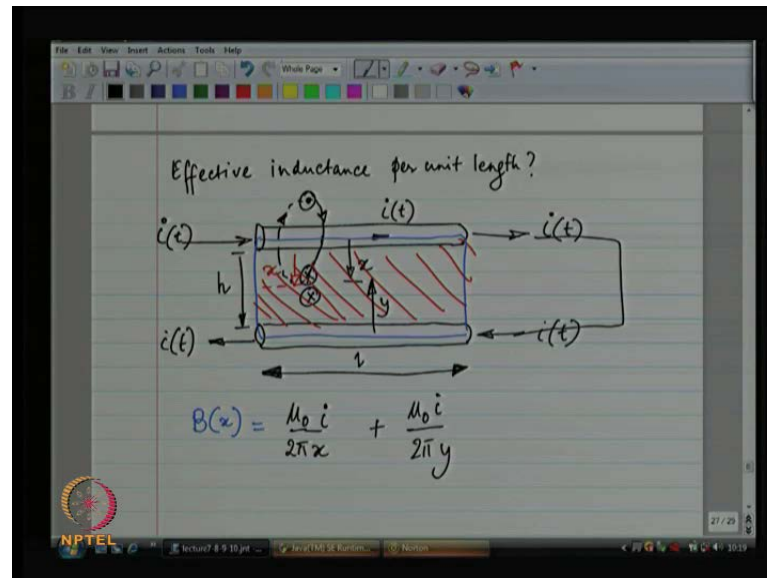 File Edit View Insert Actions Tools Help
Whole Page
B I
Effective inductance per unit length?
i(t) i(t) i(t)
h x x y
i(t) i(t)
l
B(x) = μ₀ i / 2π x + μ₀ i / 2π y
27/25
NPTEL
lecture7-8-9-10.jnt - ... Java(TM) SE Runtim... Norton 10:19